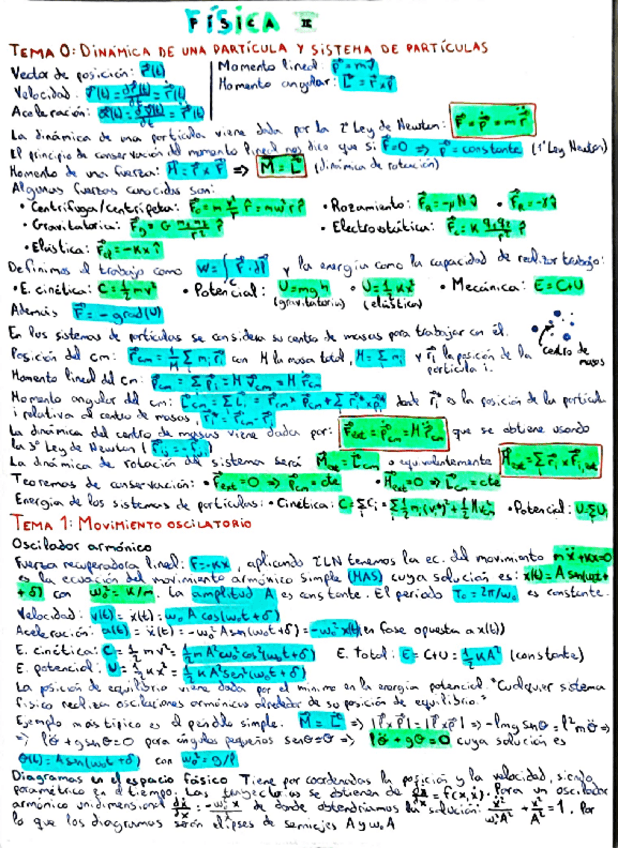 FÍSICA II
TEMA 0: DINÁMICA DE UNA PARTÍCULA Y SISTEMA DE PARTÍCULAS
Vector de posición: r⃗(t)
Momento lineal p⃗ = m v⃗
Velocidad: v⃗(t) = dr⃗(t)/dt = ṙ⃗(t)
Momento angular: L⃗ = r⃗ x p⃗
Aceleración: a⃗(t) = dv⃗(t)/dt = r̈⃗(t)
La dinámica de una partícula viene dada por la 2ª Ley de Newton: F⃗ = ṗ⃗ = m r̈⃗
El principio de conservación del momento lineal nos dice que si F⃗=0 ⇒ p⃗ = constante (1ª Ley Newton)
Momento de una fuerza: M⃗ = r⃗ x F⃗ ⇒ M⃗ = L̇⃗ (dinámica de rotación)
Algunas fuerzas conocidas son:
• Centrífuga/centrípeta: F⃗c = m v²/r r̂ = mω² r r̂ • Rozamiento: F⃗R = -μN v̂ • F⃗R = -γv⃗
• Gravitatoria: F⃗g = G m₁m₂/r² r̂ • Electrostática: F⃗e = K q₁q₂/r² r̂
• Elástica: F⃗el = -Kx î
Definimos el trabajo como W = ∫c F⃗·dl⃗ y la energía como la capacidad de realizar trabajo:
• E. cinética: C = ½ m v² • Potencial: U = mgh (gravitatoria) • U = ½ Kx² (elástica) • Mecánica: E = C+U
Además F⃗ = -grad(U)
En los sistemas de partículas se considera su centro de masas para trabajar con él.
centro de masas
Posición del cm: r⃗cm = 1/M Σ mᵢ r⃗ᵢ con M la masa total, M = Σ mᵢ y r⃗ᵢ la posición de la partícula i.
Momento lineal del cm: p⃗cm = Σ p⃗ᵢ = M v⃗cm = M ṙ⃗cm
Momento angular del cm: L⃗cm = Σ L⃗ᵢ = r⃗cm x p⃗cm + Σ r⃗ᵢ* x p⃗ᵢ* donde r⃗ᵢ* es la posición de la partícula
i relativa al centro de masas, r⃗ᵢ* = r⃗cm - r⃗ᵢ
La dinámica del centro de masas viene dada por: F⃗ext = ṗ⃗cm = M r̈⃗cm que se obtiene usando
la 3ª Ley de Newton (F⃗ij = -F⃗ji)
La dinámica de rotación del sistema será M⃗ext = L̇⃗cm o equivalentemente M⃗ext = Σ r⃗ᵢ x F⃗ᵢ,ext
Teoremas de conservación: • F⃗ext = 0 ⇒ p⃗cm = cte • M⃗ext = 0 ⇒ L⃗cm = cte
Energía de los sistemas de partículas: • Cinética: C = Σ Cᵢ = Σ ½ mᵢ (vᵢ*)² + ½ M v²cm • Potencial: U = Σ Uᵢ
TEMA 1: MOVIMIENTO OSCILATORIO
Oscilador armónico
Fuerza recuperadora lineal: F = -Kx, aplicando 2LN tenemos la ec. del movimiento mẍ + Kx = 0
es la ecuación del movimiento armónico simple (MAS) cuya solución es: x(t) = A sen(ω₀t
+ δ) con ω₀² = K/m. La amplitud A es constante. El periodo T₀ = 2π/ω₀ es constante.
Velocidad: v(t) = ẋ(t) = ω₀ A cos(ω₀t + δ)
Aceleración: a(t) = ẍ(t) = -ω₀² A sen(ω₀t + δ) = -ω₀² x(t) (en fase opuesta a x(t))
E. cinética: C = ½ m v² = ½ m A² ω₀² cos²(ω₀t + δ) E. total: E = C+U = ½ KA² (constante)
E. potencial: U = ½ Kx² = ½ KA² sen²(ω₀t + δ)
La posición de equilibrio viene dada por el mínimo en la energía potencial. "Cualquier sistema
físico realiza oscilaciones armónicas alrededor de su posición de equilibrio."
Ejemplo más típico es el péndulo simple. M⃗ = L̇⃗ ⇒ |r⃗ x F⃗| = |r⃗ x ṗ⃗| ⇒ -lmg senθ = l² m θ̈ ⇒
⇒ lθ̈ + g senθ = 0 para ángulos pequeños senθ ≈ θ ⇒ lθ̈ + gθ = 0 cuya solución es
θ(t) = A sen(ω₀t + δ) con ω₀² = g/l
Diagramas en el espacio fásico Tiene por coordenadas la posición y la velocidad, siendo
paramétrico en el tiempo. Las trayectorias se obtienen de dẋ/dx = f(x,ẋ). Para un oscilador
armónico unidimensional dẋ/dx = -ω₀² x/ẋ de donde obtendríamos la solución: ẋ²/ω₀²A² + x²/A² = 1. Por
lo que los diagramas serán elipses de semiejes A y ω₀A